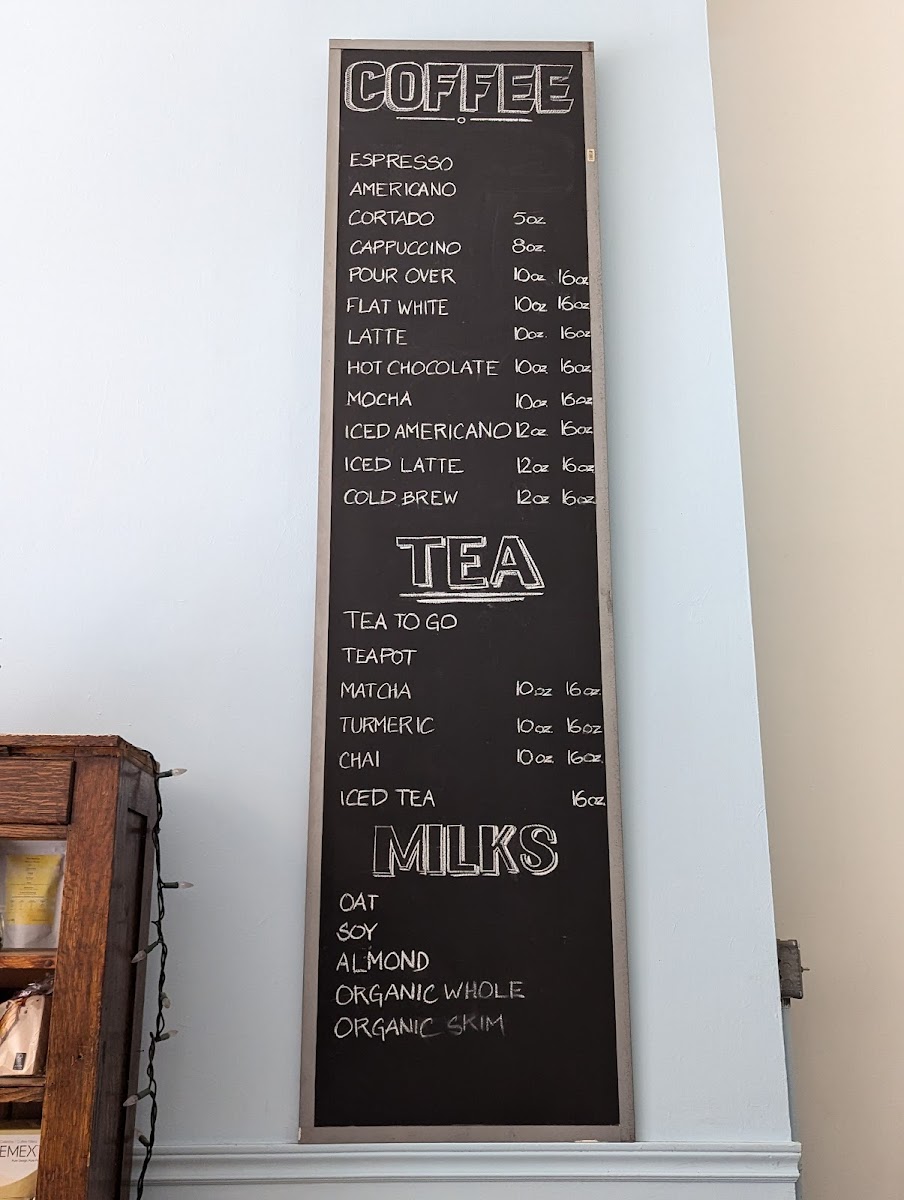 COFFEE
ESPRESSO
AMERICANO
CORTADO 5oz
CAPPUCCINO 8oz.
POUR OVER 10oz 16oz
FLAT WHITE 10oz 16oz
LATTE 10oz. 16oz
HOT CHOCOLATE 10oz 16oz
MOCHA 10oz 16oz
ICED AMERICANO 12oz 16oz
ICED LATTE 12oz 16oz
COLD BREW 12oz 16oz
TEA
TEA TO GO
TEAPOT
MATCHA 10oz 16oz.
TURMERIC 10oz 16oz
CHAI 10oz 16oz.
ICED TEA 16oz.
MILKS
OAT
SOY
ALMOND
ORGANIC WHOLE
ORGANIC SKIM
EMEX